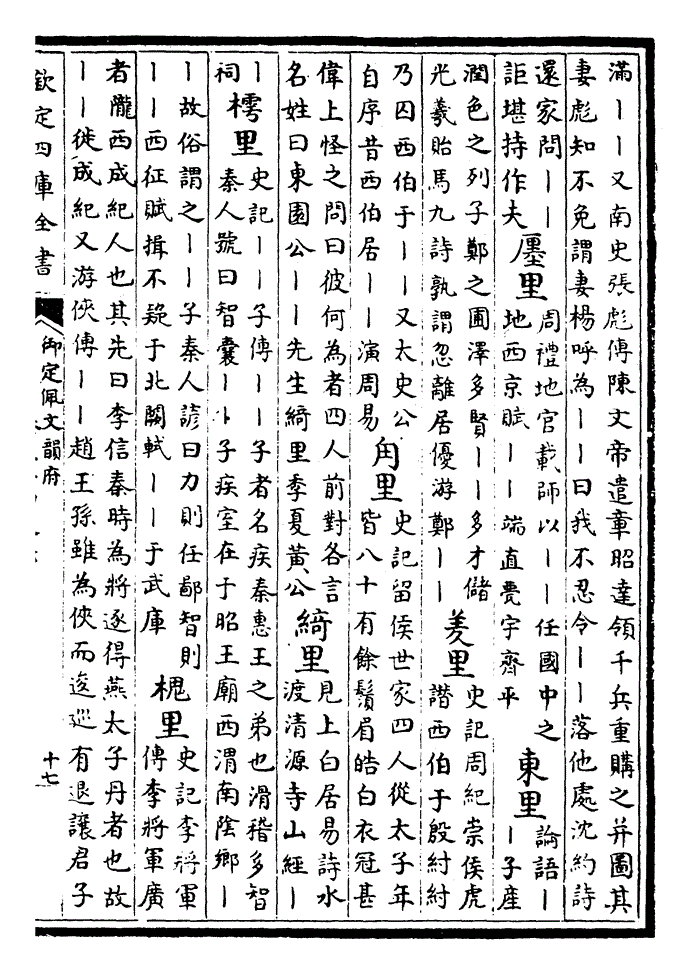 滿丨丨又南史張彪傳陳文帝遣章昭達領千兵重購之并圖其
妻彪知不免謂妻楊呼為丨丨曰我不忍令丨丨落他處沈約詩
還家問丨丨
詎堪持作夫
廛里
周禮地官載師以丨丨任國中之
地西京賦丨丨端直甍宇齊平
東里
論語丨
丨子産
潤色之列子鄭之圃澤多賢丨丨多才儲
光羲貽馬九詩孰謂忽離居優游鄭丨丨
羑里
史記周紀崇侯虎
譖西伯于殷紂紂
乃囚西伯于丨丨又太史公
自序昔西伯居丨丨演周易
甪里
史記留侯世家四人從太子年
皆八十有餘鬚眉皓白衣冠甚
偉上怪之問曰彼何為者四人前對各言
名姓曰東園公丨丨先生綺里季夏黃公
綺里
見上白居易詩水
渡清源寺山經丨
丨
祠
樗里
史記丨丨子傳丨丨子者名疾秦惠王之弟也滑稽多智
秦人號曰智囊丨丨子疾室在于昭王廟西渭南陰鄉丨
丨故俗謂之丨丨子秦人諺曰力則任鄙智則
丨丨西征賦揖不疑于北闕軾丨丨于武庫
槐里
史記李將軍
傳李將軍廣
者隴西成紀人也其先曰李信秦時為將逐得燕太子丹者也故
丨丨徙成紀又游俠傳丨丨趙王孫雖為俠而逡巡有退讓君子
欽定四庫全書
御定佩文韻府
十七